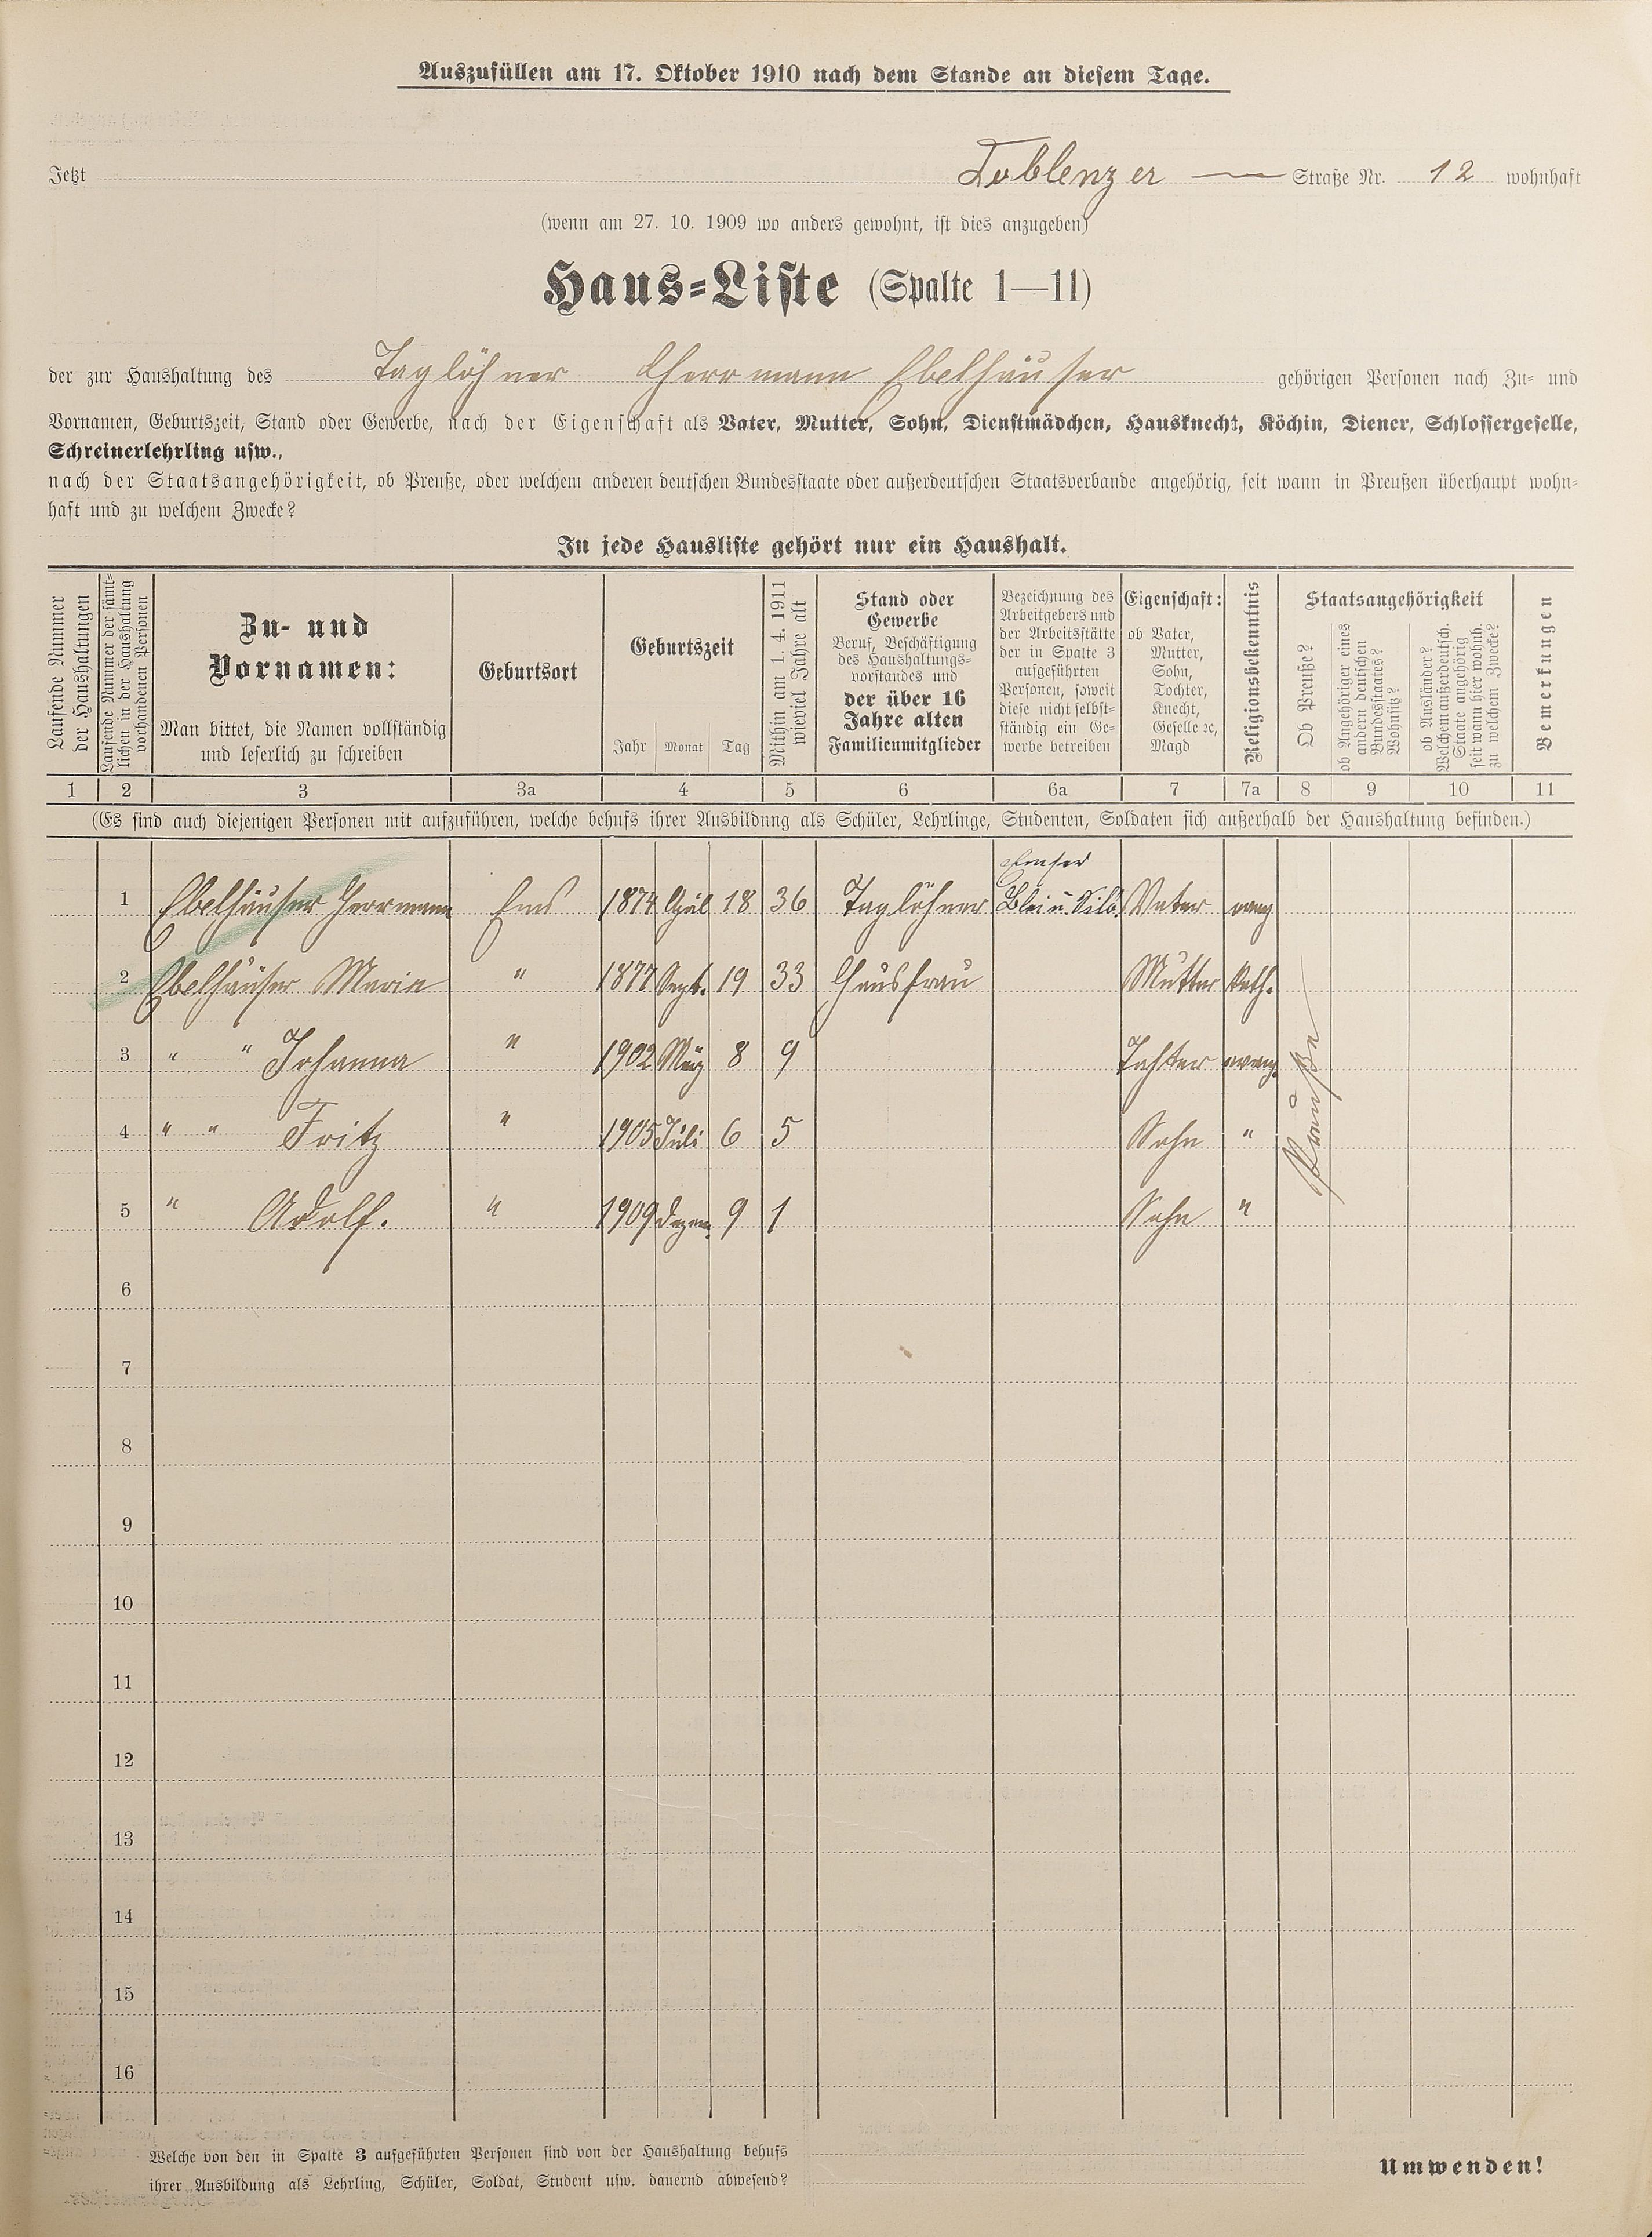 Auszufüllen am 17. Oktober 1910 nach dem Stande an diesem Tage.
Jetzt Coblenzer — Straße Nr. 12 wohnhaft
(wenn am 27. 10. 1909 wo anders gewohnt, ist dies anzugeben)
Haus-Liste (Spalte 1—11)
der zur Haushaltung des Taglöhner Herrmann Ebelhäuser gehörigen Personen nach Zu- und
Vornamen, Geburtszeit, Stand oder Gewerbe, nach der Eigenschaft als Vater, Mutter, Sohn, Dienstmädchen, Hausknecht, Köchin, Diener, Schlossergeselle,
Schreinerlehrling usw.,
nach der Staatsangehörigkeit, ob Preuße, oder welchem anderen deutschen Bundesstaate oder außerdeutschen Staatsverbande angehörig, seit wann in Preußen überhaupt wohn-
haft und zu welchem Zwecke?
In jede Hausliste gehört nur ein Haushalt.
Laufende Nummer
der Haushaltungen
Laufende Nummer der sämt-
lichen in der Haushaltung
vorhandenen Personen
Zu- und
Vornamen:
Man bittet, die Namen vollständig
und leserlich zu schreiben
Geburtsort
Geburtszeit
Jahr Monat Tag
Mithin am 1. 4. 1911
wieviel Jahre alt
Stand oder
Gewerbe
Beruf, Beschäftigung
des Haushaltungs-
vorstandes und
der über 16
Jahre alten
Familienmitglieder
Bezeichnung des
Arbeitgebers und
der Arbeitsstätte
der in Spalte 3
aufgeführten
Personen, soweit
diese nicht selbst-
ständig ein Ge-
werbe betreiben
Eigenschaft:
ob Vater,
Mutter,
Sohn,
Tochter,
Knecht,
Geselle ꝛc,
Magd
Religionsbekenntnis
Staatsangehörigkeit
Ob Preuße?
ob Angehöriger eines
andern deutschen
Bundesstaates?
Wohnsitz?
ob Ausländer?
Welchem außerdeutsch.
Staate angehörig
seit wann hier wohnh.
zu welchem Zwecke?
Bemerkungen
1 2 3 3a 4 5 6 6a 7 7a 8 9 10 11
(Es sind auch diejenigen Personen mit aufzuführen, welche behufs ihrer Ausbildung als Schüler, Lehrlinge, Studenten, Soldaten sich außerhalb der Haushaltung befinden.)
Emser
1 Ebelhäuser Herrmann Ems 1874 April 18 36 Taglöhner Blei u. Silb. Vater evang
2 Ebelhäuser Maria " 1877 Sept. 19 33 Hausfrau Mutter Kath.
3 " " Johanna " 1902 März 8 9 Tochter evang.
Preuße
4 " " Fritz " 1905 Juli 6 5 Sohn "
5 " Adolf. " 1909 Dezem. 9 1 Sohn "
6
7
8
9
10
11
12
13
14
15
16
Welche von den in Spalte 3 aufgeführten Personen sind von der Haushaltung behufs
ihrer Ausbildung als Lehrling, Schüler, Soldat, Student usw. dauernd abwesend?
Umwenden!